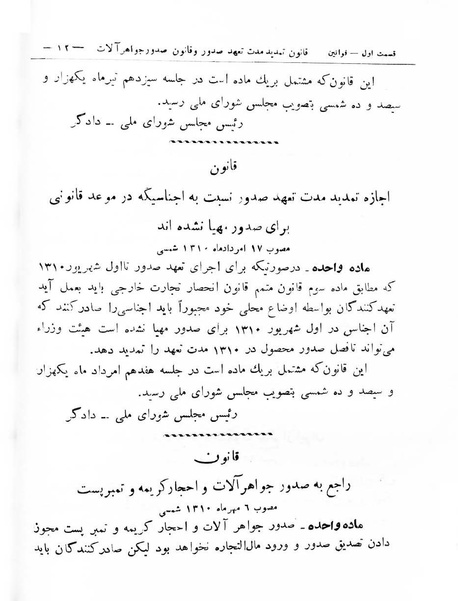 قسمت اول — قوانین قانون تمدید مدت تعهد صدور وقانون صدور جواهرآلات — ۱۲ —
این قانون که مشتمل بریك ماده است در جلسه سیزدهم تیرماه یکهزار و
سیصد و ده شمسی بتصویب مجلس شورای ملی رسید.
رئیس مجلس شورای ملی ــ دادگر
قانون
اجازه تمدید مدت تعهد صدور نسبت به اجناسیکه در موعد قانونی
برای صدور مهیا نشده اند
مصوب ۱۷ امردادماه ۱۳۱۰ شمسی
ماده واحده ـ درصورتیکه برای اجرای تعهد صدور تااول شهریور ۱۳۱۰
که مطابق ماده سوم قانون متمم قانون انحصار تجارت خارجی باید بعمل آید
تعهدکنندگان بواسطه اوضاع محلی خود مجبوراً باید اجناسی را صادرکنند که
آن اجناس در اول شهریور ۱۳۱۰ برای صدور مهیا نشده است هیئت وزراء
می‌تواند تافصل صدور محصول در ۱۳۱۰ مدت تعهد را تمدید دهد.
این قانون که مشتمل بریك ماده است در جلسه هفدهم امرداد ماه یکهزار
و سیصد و ده شمسی بتصویب مجلس شورای ملی رسید.
رئیس مجلس شورای ملی ــ دادگر
قانون
راجع به صدور جواهرآلات و احجارکریمه و تمبرپست
مصوب ۶ مهرماه ۱۳۱۰ شمسی
ماده واحده ـ صدور جواهر آلات و احجار کریمه و تمبر پست مجوز
دادن تصدیق صدور و ورود مال‌التجاره نخواهد بود لیکن صادرکنندگان باید